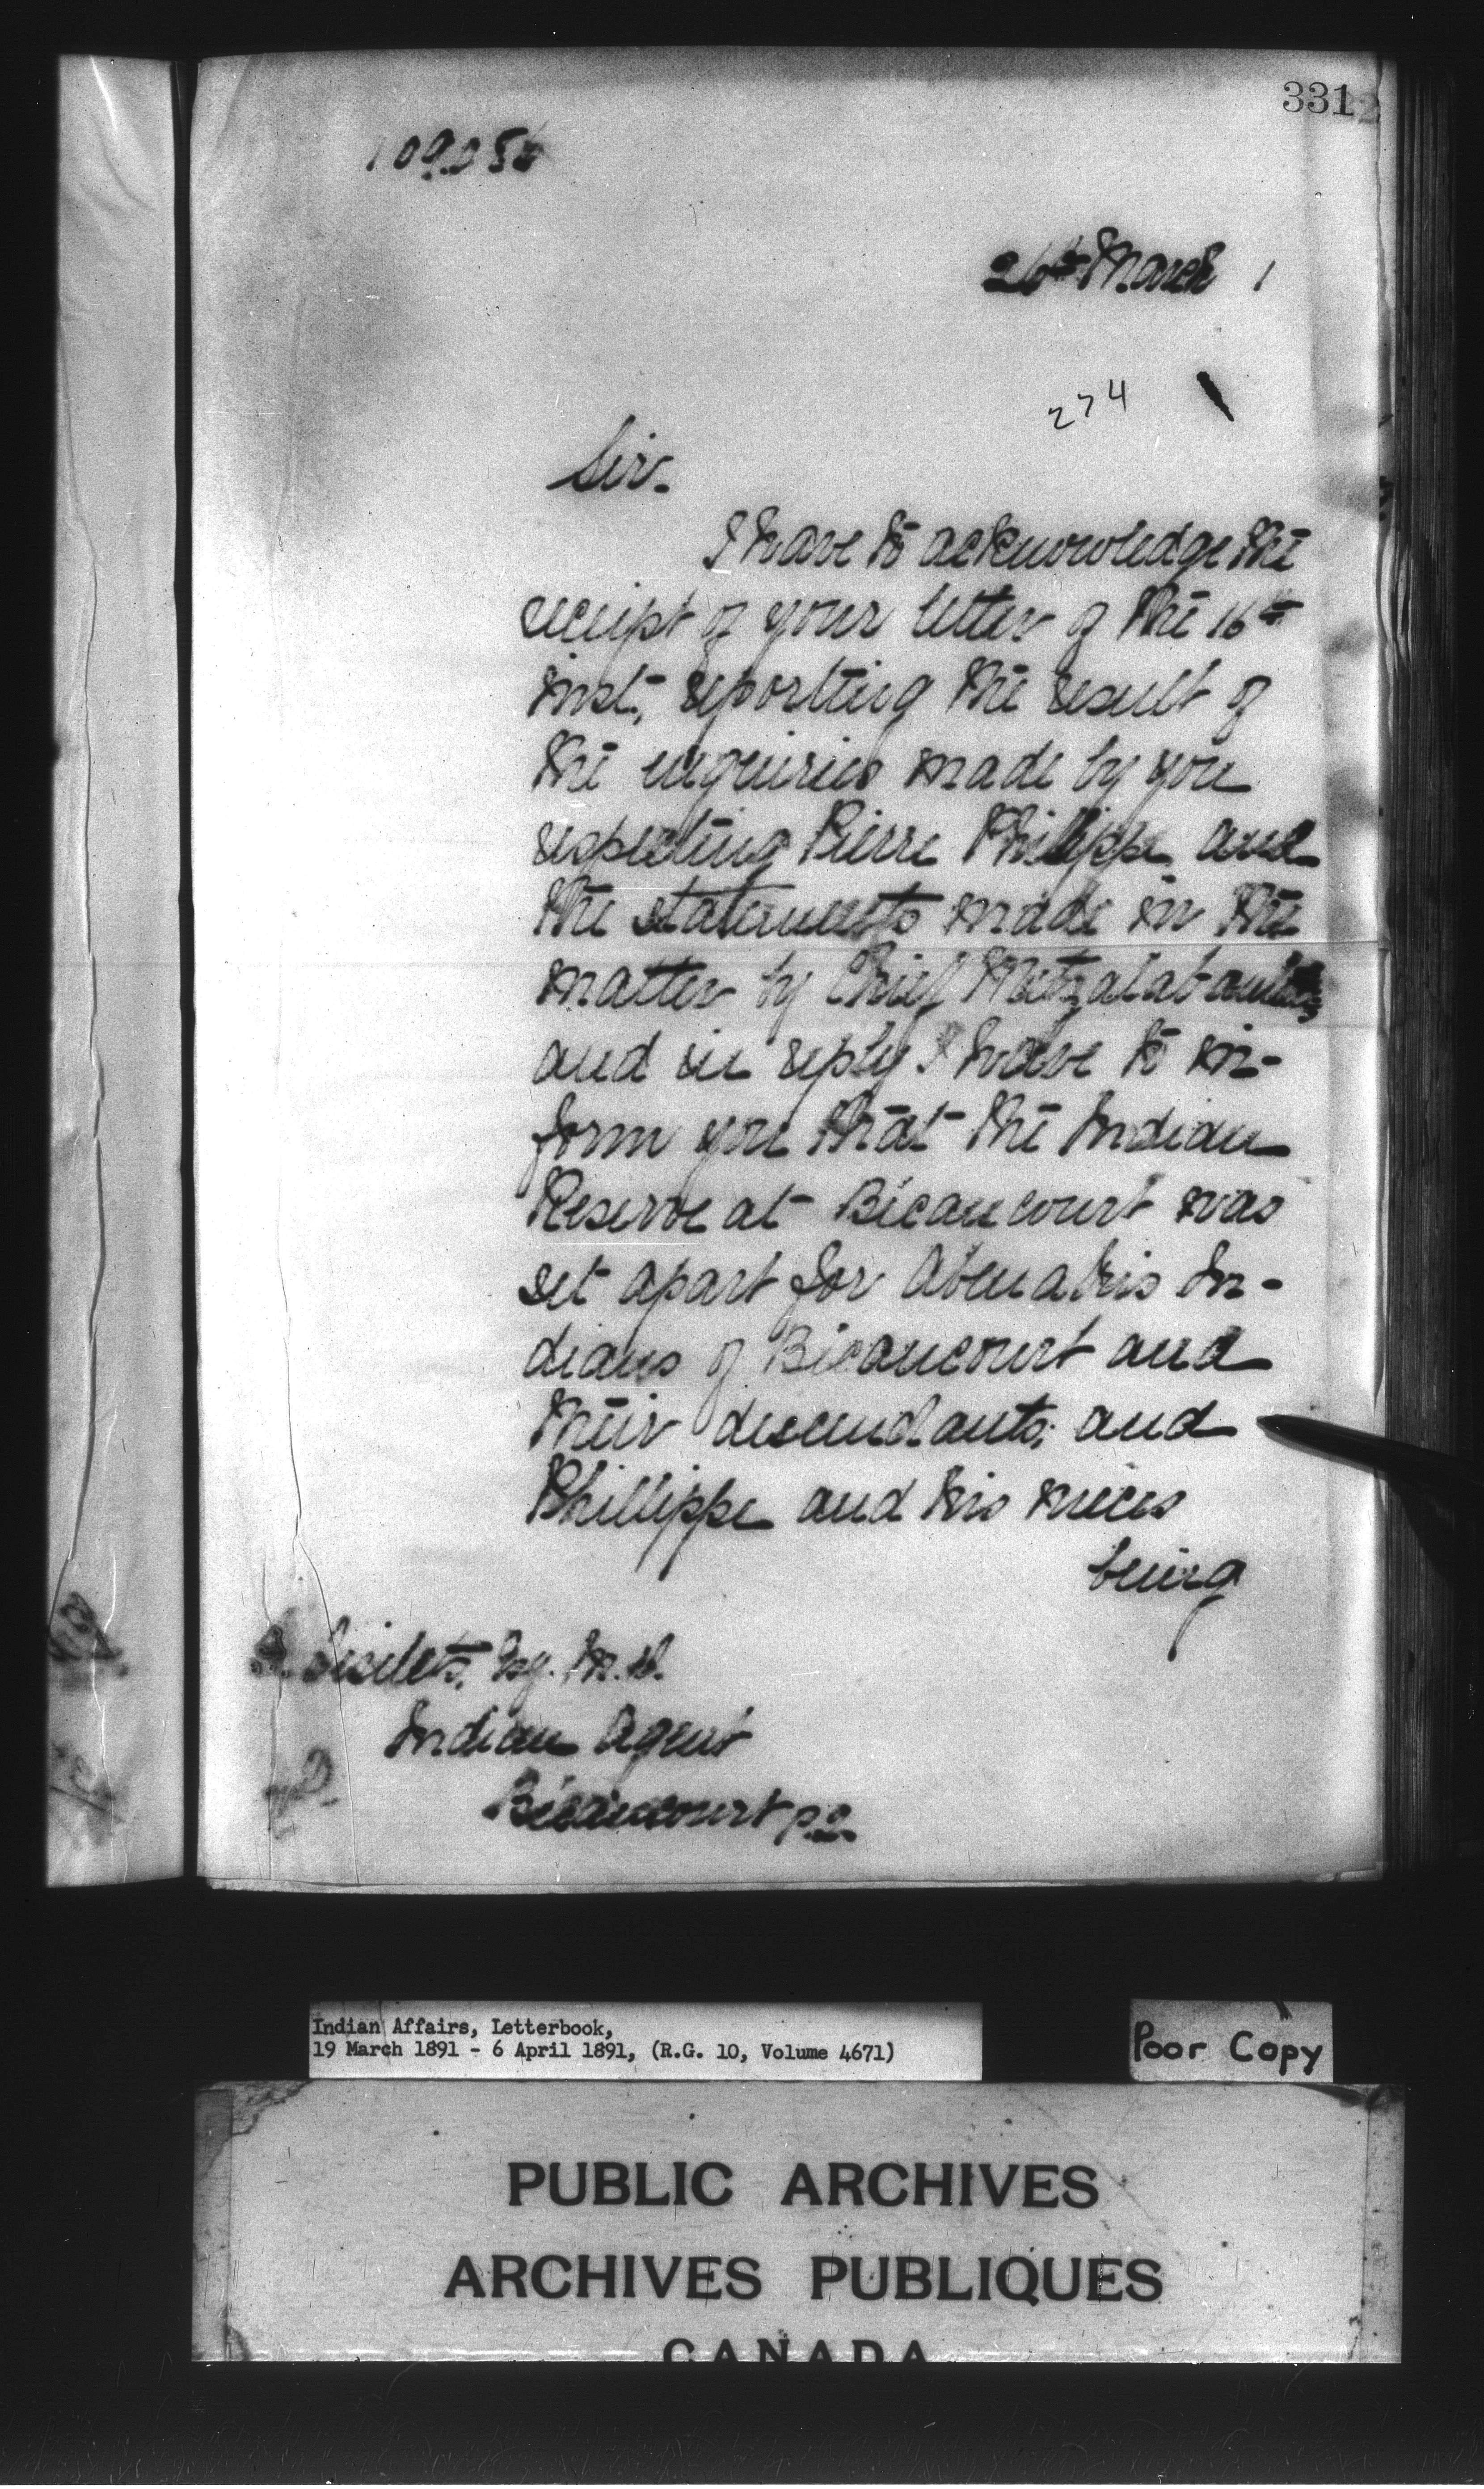 331
26th March 1
274
Sir.
I have to acknowledge the
receipt of your letter of the 16th
inst, reporting the result of
the enquiries made by you
respecting Pierre Phillippe and
the statements made in the
matter by Chief
and in reply I have to in-
form you that the Indian
Reserve at Bécancourt was
set apart for Abenakis In-
dians of Bécancourt and
their descendants; and
Phillippe and his nieces
being
Esq. M.D.
Indian Agent
Bécancourt P.Q.
Indian Affairs, Letterbook,
19 March 1891 - 6 April 1891, (R.G. 10, Volume 4671)
Poor Copy
PUBLIC ARCHIVES
ARCHIVES PUBLIQUES
CANADA